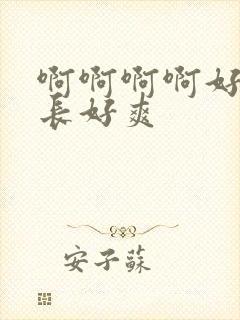 啊啊啊啊好
長好爽
安子蘇